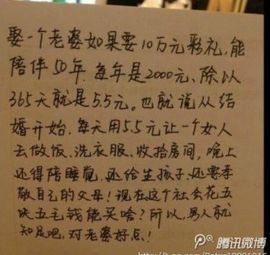 娶一个老婆如果要10万元彩礼,能
陪伴50年.每年是2000元、除以
365天就是5.5元。也就说从结
婚开始.每天用5.5元让一个女人
去做饭、洗衣服、收拾房间,晚上
还得陪睡觉,还给生孩子、还要孝
敬自己的父母!现在这个社会花五
块五毛钱能买啥?所以,男人就
知足吧,对老婆好点!
腾讯微博